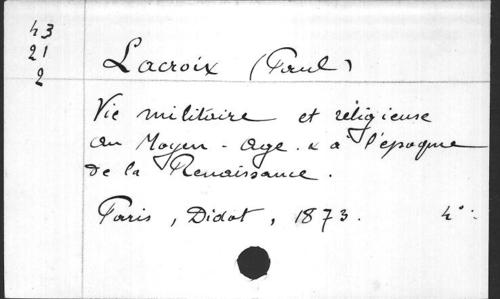 43
21
2
Lacroix (Paul)
Vie militaire et réligieuse
au Moyen-age. & a l'époque
de la Renaissance.
Paris, Didot, 1873. 4°: